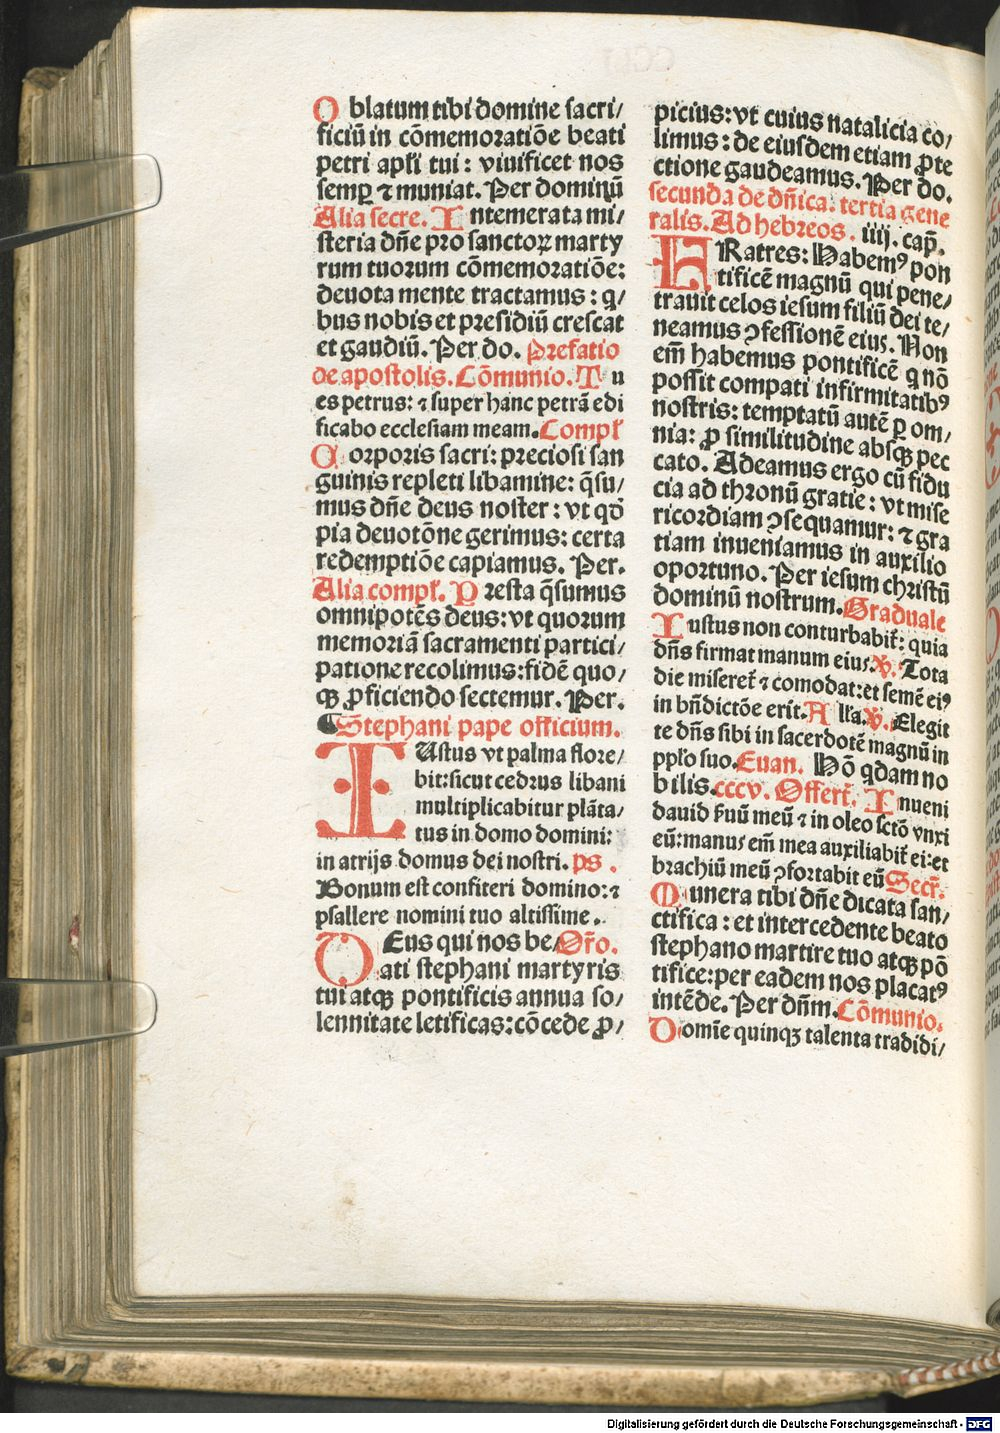 Oblatum tibi domine sacri/
ficiū in cōmemoratiōe beati
petri apłi tui : viuificet nos
semꝑ ⁊ muniat. Per dominū
Alia secre. Intemerata mi/
steria dñe pro sanctoꝝ marty
rum tuorum cōmemoratiōe:
deuota mente tractamus : q̄/
bus nobis et presidiū crescat
et gaudiū. Per do. Prefatio
de apostolis. Cōmunio. Tu
es petrus: ⁊ super hanc petrā edi
ficabo ecclesiam meam. Compł
Corporis sacri: preciosi san
guinis repleti libamine: q̄su/
mus dñe deus noster : vt qđ
pia deuotōne gerimus: certa
redemptiōe capiamus. Per.
Alia compł. Presta q̄sumus
omnipotēs deus: vt quorum
memoriā sacramenti partici/
patione recolimus: fidē quo/
qꝫ ꝓficiendo sectemur. Per.
Stephani pape officium.
IUstus vt palma flore/
bit: sicut cedrus libani
multiplicabitur plāta/
tus in domo domini:
in atrijs domus dei nostri. ps.
Bonum est confiteri domino: ⁊
psallere nomini tuo altissime.
DEus qui nos be/ Oro.
ati stephani martyris
tui atqꝫ pontificis annua so/
lennitate letificas: cōcede ꝓ/
picius: vt cuius natalicia co/
limus : de eiusdem etiam ꝓte
ctione gaudeamus. Per do.
secunda de dñica. tertia gene
ralis. Ad hebreos. iiij. cap̄.
FRatres: Habemꝰ pon
tificē magnū qui pene/
trauit celos iesum filiū dei te/
neamus ꝯfessionē eius. Non
em̄ habemus pontificē q nō
possit compati infirmitatibꝰ
nostris: temptatū autē ꝑ om/
nia: ꝓ similitudine absqꝫ pec
cato. Adeamus ergo cū fidu
cia ad thronū gratie : vt mise
ricordiam ꝯsequamur: ⁊ gra
tiam inueniamus in auxilio
oportuno. Per iesum christū
dominū nostrum. Graduale
Iustus non conturbabit̄: quia
dñs firmat manum eius. ℣. Tota
die miseret̄ ⁊ comodat: et semē eiꝰ
in bñdictōe erit. Alła. ℣. Elegit
te dñs sibi in sacerdotē magnū in
ppło suo. Euan. Hō qdam no
bilis. cccv. Offert̄. Inueni
dauid ẜuū meū ⁊ in oleo sctō vnxi
eū: manus em̄ mea auxiliabit̄ ei: et
brachiū meū ꝯfortabit eū Secr̄.
Munera tibi dñe dicata san/
ctifica : et intercedente beato
stephano martire tuo atqꝫ pō
tifice: per eadem nos placatꝰ
intēde. Per dñm. Cōmunio.
Domīe quinqꝫ talenta tradidi/
Digitalisierung gefördert durch die Deutsche Forschungsgemeinschaft - DFG